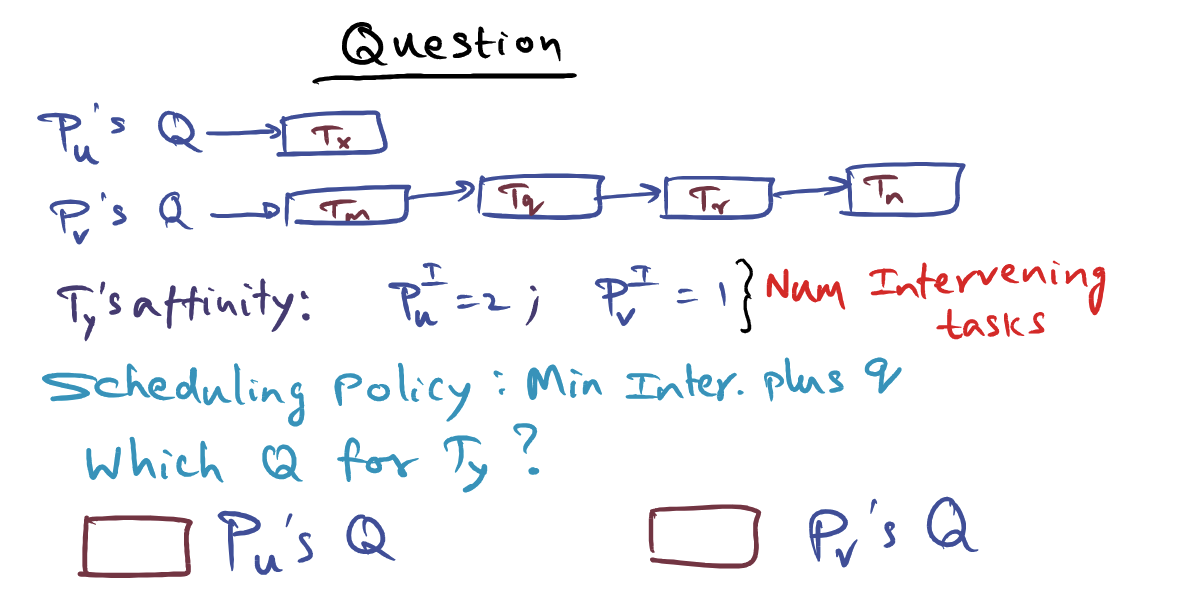 Question
Pu's Q → Tx
Pv's Q → Tm → Tq → Tr → Tn
Ty's affinity: Pu^I = 2 ; Pv^I = 1 } Num Intervening
tasks
Scheduling Policy : Min Inter. plus q
Which Q for Ty ?
Pu's Q Pv's Q